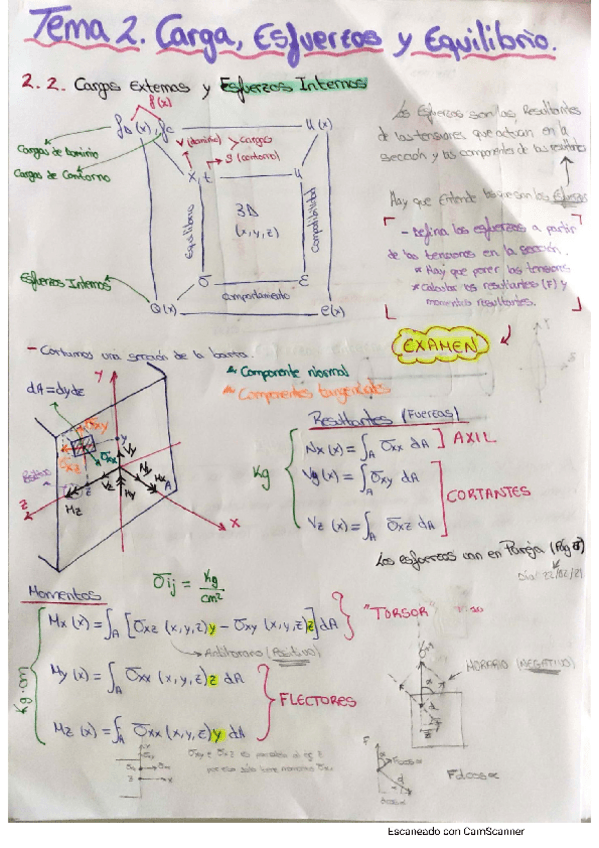 Tema 2. Carga, Esfuerzos y Equilibrio.
2.2. Cargas Externas y Esfuerzos Internos
f(x)
fD(x), fc
u(x)
Cargas de Dominio
Cargas de Contorno
V (dominio)
S (contorno)
Cargas
x, t
u
Equilibrio
3D
(x,y,z)
Compatibilidad
σ
ε
comportamiento
Esfuerzos Internos
Q(x)
e(x)
Los Esfuerzos son las Resultantes
de las tensiones que actúan en la
sección y las componentes de las resultantes
Hay que entender lo que son los Esfuerzos
- Defina los esfuerzos a partir
de las tensiones en la sección.
* Hay que poner las tensiones
* calcular las resultantes (F) y
momentos resultantes.
EXAMEN
- Cortamos una sección de la barra.
Componente normal
Componentes tangenciales
dA = dydz
Y
σxy
σxz
σxx
y
Vy
Nx
Mx
A
Vz
My
Mz
z
x
Resultantes (Fuerzas)
Kg
Nx(x) = ∫A σxx dA
AXIL
Vy(x) = ∫A σxy dA
Vz(x) = ∫A σxz dA
CORTANTES
Los esfuerzos van en Pareja (Pág 8)
Día 22/02/21
σij = Kg/cm²
Momentos
Kg·cm
Mx(x) = ∫A [σxz (x,y,z)y - σxy (x,y,z)z] dA
"TORSOR
Antihorario (Positivo)
My(x) = ∫A σxx (x,y,z)z dA
Mz(x) = ∫A σxx (x,y,z)y dA
FLECTORES
HORARIO (NEGATIVO)
F
Fcosα
d
Fdcosα
Escaneado con CamScanner